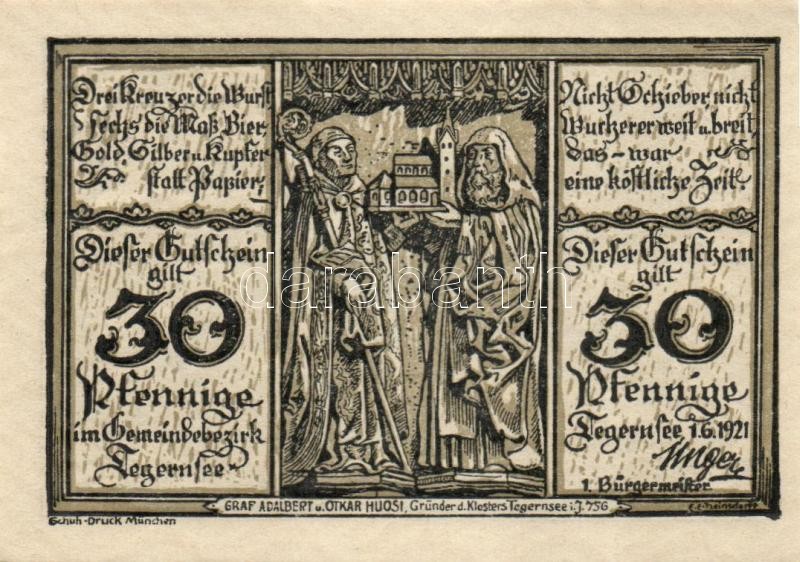 Drei Kreuzer die Wurst
sechs die Maß Bier,
Gold, Silber u. Kupfer
statt Papier,
Nicht Schieber, nicht
Wucherer weit u. breit,
das – war
eine köstliche Zeit.
Dieser Gutschein
gilt
30
Pfennige
im Gemeindebezirk
Tegernsee
Dieser Gutschein
gilt
30
Pfennige
Tegernsee 1.6.1921
Unger
1. Bürgermeister
GRAF ADALBERT u. OTKAR HUOSI, Gründer d. Klosters Tegernsee i. J. 756
Schuh-Druck München
darabanth